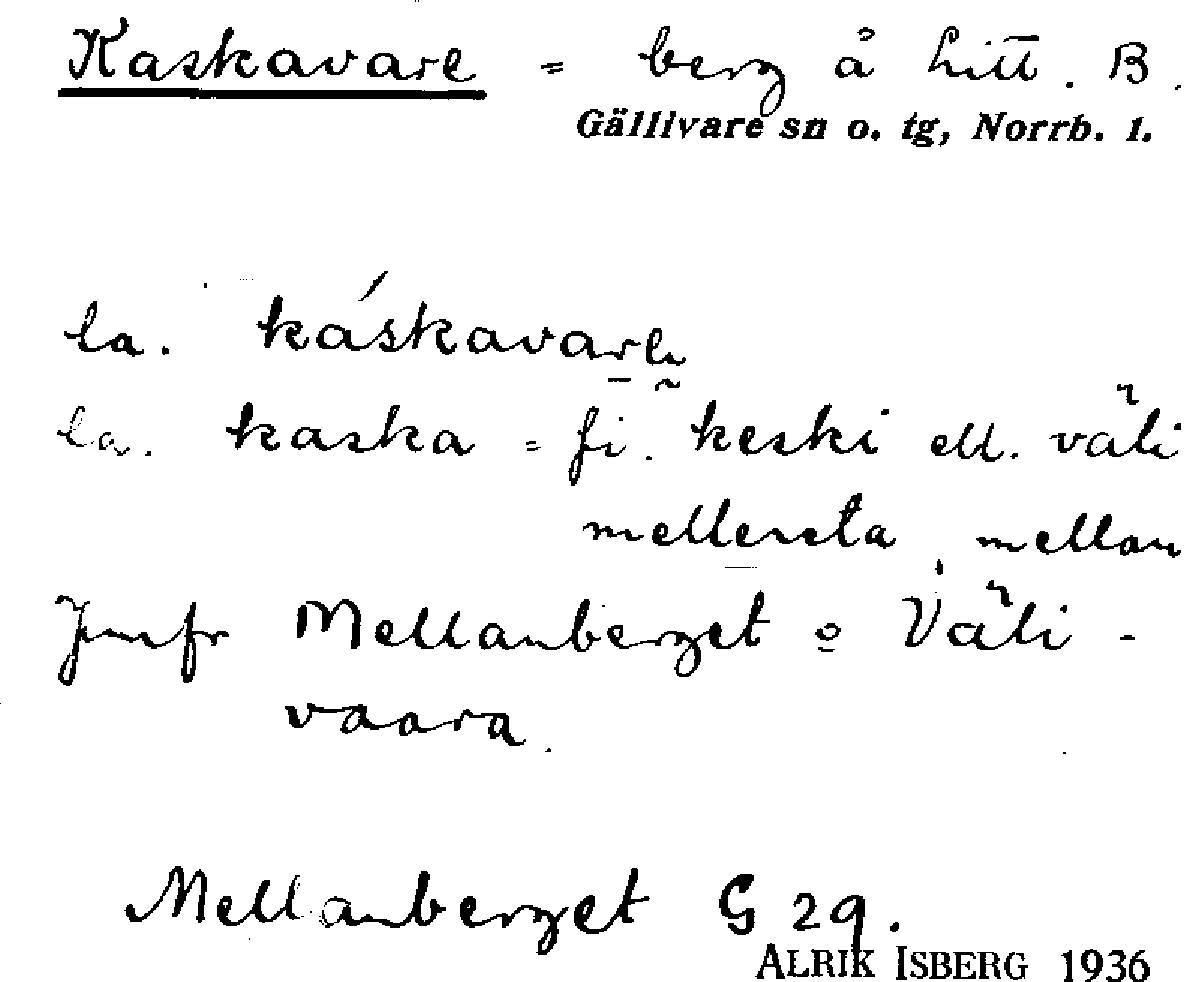 Kaskavare = berg å Litt. B.
Gällivare sn o. tg, Norrb. l.
la. káskavarle
la. kaska = fi. keski ell. väli
mellersta, mellan
Jmfr Mellanberget o Väli-
vaara.
Mellanberget G 29.
ALRIK ISBERG 1936